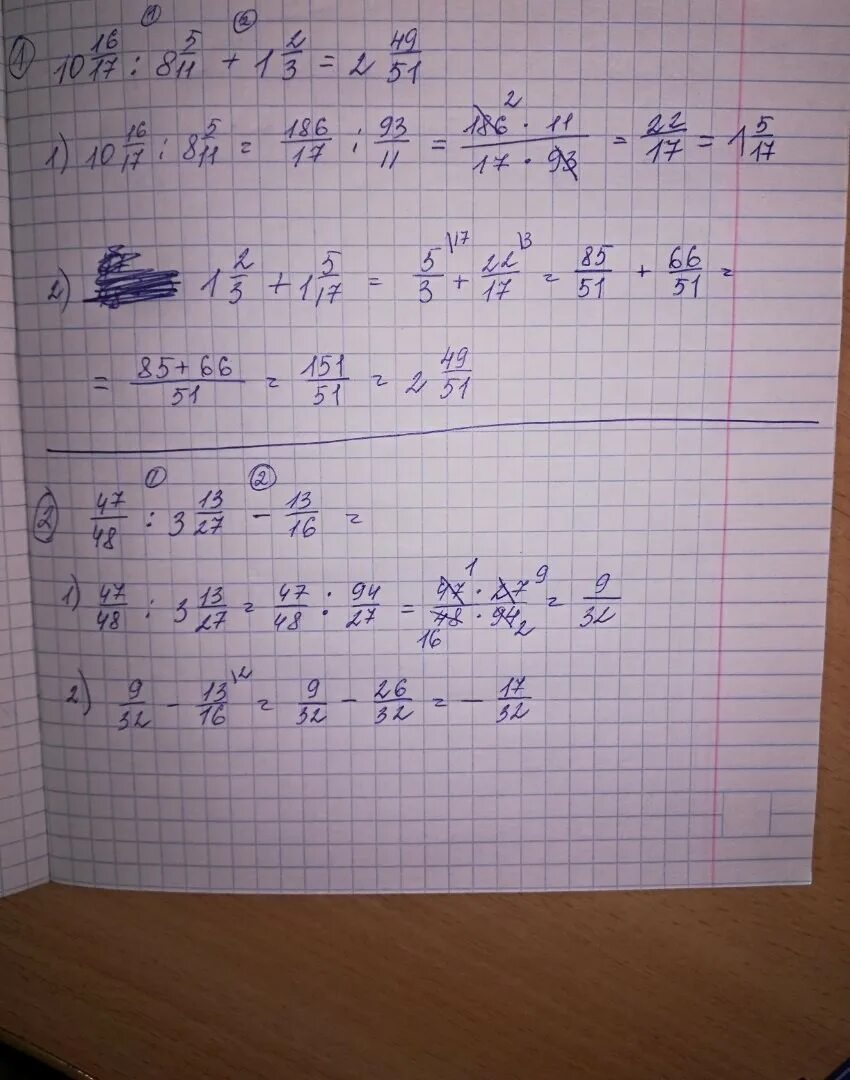 ① ②
① 10 16/17 : 8 5/11 + 1 2/3 = 2 49/51
1) 10 16/17 : 8 5/11 = 186/17 : 93/11 = 186 2 · 11 / 17 · 93 = 22/17 = 1 5/17
2) 1 2/3 + 1 5/17 = 5/3 \17 + 22/17 \3 = 85/51 + 66/51 =
= 85+66/51 = 151/51 = 2 49/51
① ②
② 47/48 : 3 13/27 - 13/16 =
1) 47/48 : 3 13/27 = 47/48 : 94/27 = 47 1 · 27 9 / 48 16 · 94 2 = 9/32
2) 9/32 - 13/16 \2 = 9/32 - 26/32 = - 17/32